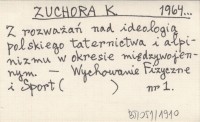 ZUCHORA K. 1964...
Z rozważań nad ideologią
polskiego taternictwa i alpi-
nizmu w okresie międzywojen-
nym. — Wychowanie Fizyczne
i Sport ( ) nr 1.